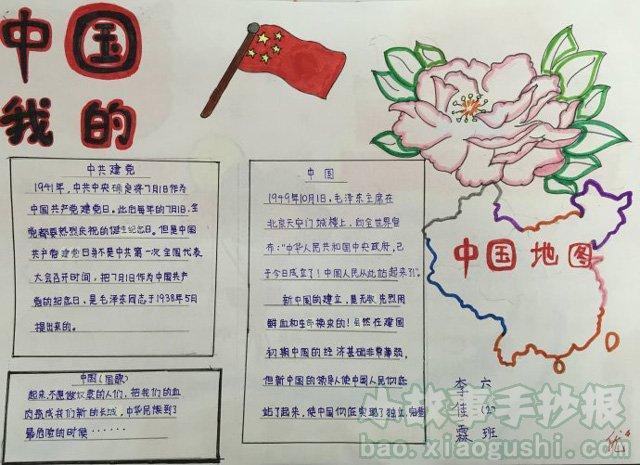 中国
我的
中共建党
1941年，中共中央决定将7月1日作为
中国共产党建党日。此后每年的7月1日，全
党都要热烈庆祝的诞生纪念日。但是中国
共产党建党日并不是中共第一次全国代表
大会召开时间，把7月1日作为中国共产
党的纪念日，是毛泽东同志于1938年5月
提出来的。
中国（国歌）
起来不愿做奴隶的人们，把我们的血
肉筑成我们新的长城，中华民族到了
最危险的时候······
中国
1949年10月1日，毛泽东主席在
北京天安门城楼上，向全世界宣
布：“中华人民共和国中央政府，已
于今日成立了！中国人民从此站起来了”。
新中国的建立，是无数先烈用
鲜血和生命换来的！虽然在建国
初期中国的经济基础非常薄弱，
但新中国的领导人使中国人民彻底
站了起来，使中国彻底实现了独立
中国地图
六（2）班
李佳霖
优
小故事手抄报
bao.xiaogushi.com